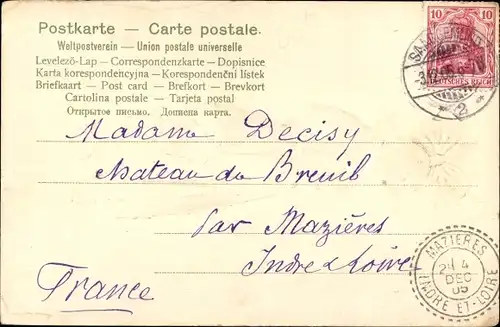 Postkarte — Carte postale.
Weltpostverein — Union postale universelle
Levelező-Lap — Correspondenzkarte — Dopisnice
Karta korespondencyjna — Korespondenční lístek
Briefkaart — Post card — Brefkort — Brevkort
Cartolina postale — Tarjeta postal
Открытое письмо. Дописна карта.
10 10
DEUTSCHES REICH
2
Madame Decisy
Chateau du Breuil
par Mazières
Indre & Loire
France
MAZIERES
4
DEC
05
INDRE ET-LOIRE